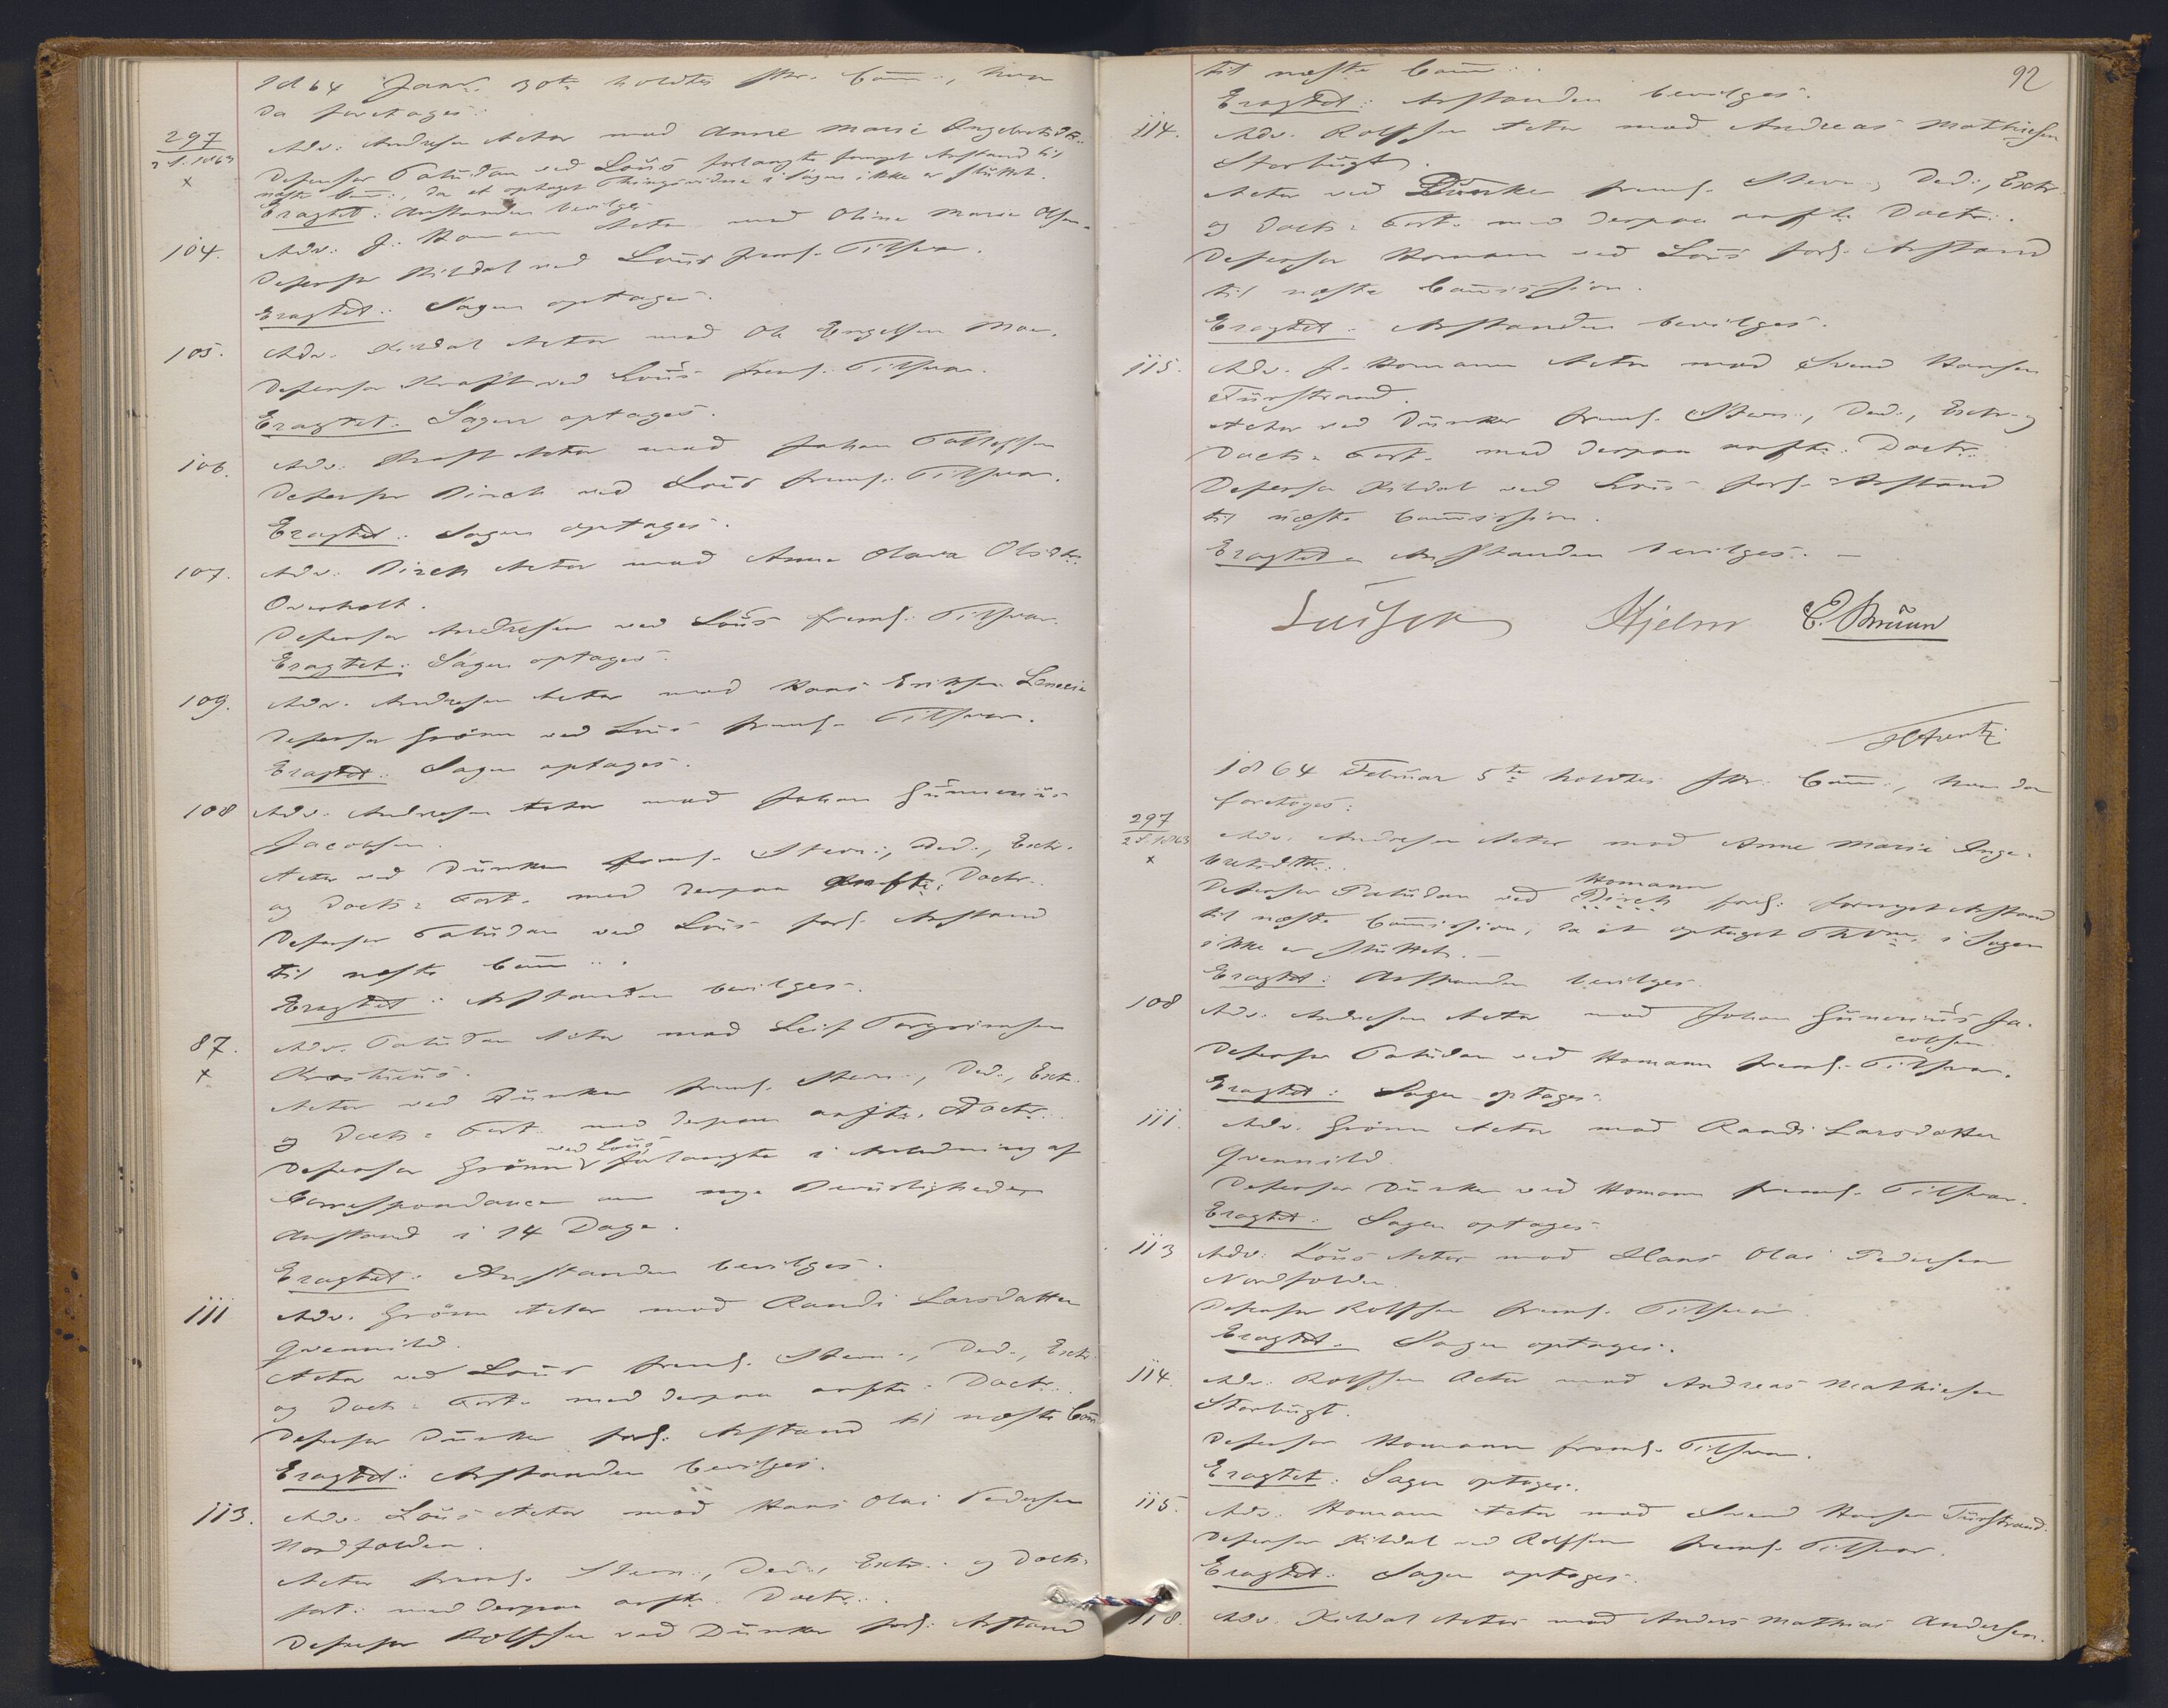 1864 Janr. 30te holdtes Skr. Comm:, hvor
da foretoges:
297
2 S. 1863
x
Adv: Andresen Actor mod Anne Marie Engebretsdtr.
Defensor Paludan ved Lous forlangte fornyet Anstand til
næste Com:, da et optaget Thingsvidne i Sagen ikke er sluttet.
Eragtet: Anstanden bevilges.
104.
Adv: J. Homann Actor mod Oline Marie Olsen.
Defensor Kildal ved Lous freml. Tilsvar.
Eragtet: Sagen optages.
105.
Adv. Kildal Actor mod Ole Engelsen Moe.
Defensor Kraft ved Lous freml. Tilsvar.
Eragtet. Sagen optages.
106.
Adv. Kraft Actor mod Johan Tollefsen
Defensor Birch ved Lous freml. Tilsvar.
Eragtet: Sagen optages.
107.
Adv. Birch Actor mod Anne Olava Olsdtr.
Overholt.
Defensor Andresen ved Lous freml. Tilsvar.
Eragtet: Sagen optages.
109.
Adv. Andresen Actor mod Hans Eriksen
Defensor Grönn ved Lous freml. Tilsvar.
Eragtet: Sagen optages.
108
Adv. Andresen Actor mod Johan Gunnerius
Jacobsen.
Actor ved Dunker freml. Stevn:, Ded:, Extr.
og Docts: Fort. med derpaa anfte: Doctr.
Defensor Paludan ved Lous forl. Anstand
til næste Com:.
Eragtet: Anstanden bevilges.
87.
x
Adv. Paludan Actor mod Leif Torgrimsen
Actor ved Dunker freml. Stevn:, Ded:, Extr.
og Docts: Fort. med derpaa anfte. Doctr.
Defensor Grönn ved Lous forlangte i Anledning af
Correspondance om nye Beviisligheder
Anstand i 14 Dage.
Eragtet: Anstanden bevilges.
111
Adv. Grönn Actor mod Randi Larsdatter
Qvennild.
Actor ved Lous freml. Stevn:, Ded:, Extr.
og Docts: Fort. med derpaa anfte: Doctr.
Defensor Dunker forl. Anstand til næste Com
Eragtet: Anstanden bevilges.
113.
Adv. Lous Actor mod Hans Olai Pedersen
Nordfolden.
Actor freml. Stevn:, Ded:, Extr: og Docts
fort: med derpaa anfte. Doctr:
Defensor Rolfsen ved Dunker forl: Anstand
92
til næste Com:.
Eragtet: Anstanden bevilges.
114.
Adv. Rolfsen Actor mod Andreas Mathisen
Storbugt.
Actor ved Dunker freml. Stevn:, Ded:, Extr.
og Docts: Fort. med derpaa anfte Doctr:.
Defensor Homann ved Lous forl. Anstand
til næste Commission.
Eragtet: Anstanden bevilges.
115.
Adv. J. Homann Actor mod Svend Hansen
Furstrand.
Actor ved Dunker freml. Stevn:, Ded:, Extr. og
Docts: Fort. med derpaa anfte: Doctr:
Defensor Kildal ved Lous forl. Anstand
til næste Commission.
Eragtet: Anstanden bevilges. —
Hjelm E. Bruun
1864 Februar 5te holdtes Skr. Com:, hvor da
foretoges:
297
2 S. 1863
x
Adv. Andresen Actor mod Anne Marie Enge-
bretsdtr.
Defensor Paludan ved Birch Homann forl: fornyet Anstand
til næste Commission, da et optaget i Sagen
ikke er sluttet. —
Eragtet: Anstanden bevilges.
108
Adv. Andresen Actor mod Johan Gunerius Ja-
cobsen.
Defensor Paludan ved Homann freml. Tilsvar.
Eragtet: Sagen optages.
111.
Adv. Grönn Actor mod Randi Larsdatter
Qvennild.
Defensor Dunker ved Homann freml. Tilsvar.
Eragtet: Sagen optages.
113
Adv: Lous Actor mod Hans Olai Pedersen
Nordfolden.
Defensor Rolfsen freml. Tilsvar.
Eragtet. Sagen optages.
114.
Adv. Rolfsen Actor mod Andreas Mathisen
Storbugt.
Defensor Homann freml. Tilsvar.
Eragtet. Sagen optages.
115.
Adv. Homann Actor mod Svend Hansen Furstrand.
Defensor Kildal ved Rolfsen freml. Tilsvar.
Eragtet: Sagen optages.
118.
Adv. Kildal Actor mod Anders Mathias Andersen.